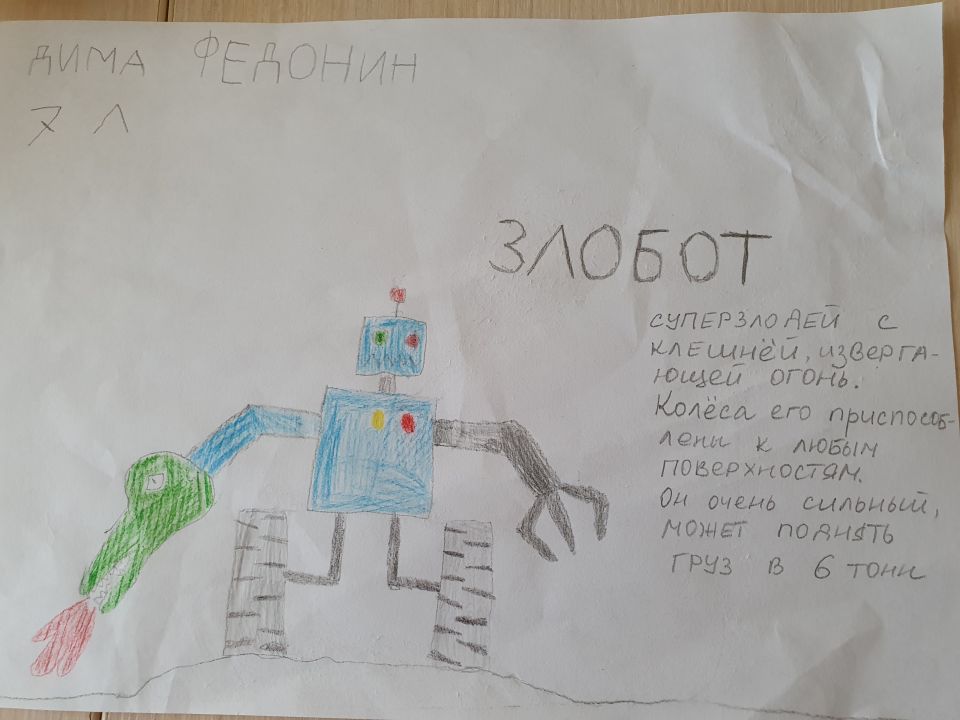 ДИМА ФЕДОНИН
7 Л
ЗЛОБОТ
СУПЕРЗЛОДЕЙ С
КЛЕШНЁЙ, ИЗВЕРГА-
ЮЩЕЙ ОГОНЬ.
Колёса его приспособ-
лены к любым
поверхностям.
Он очень сильный,
может поднять
груз в 6 тонн